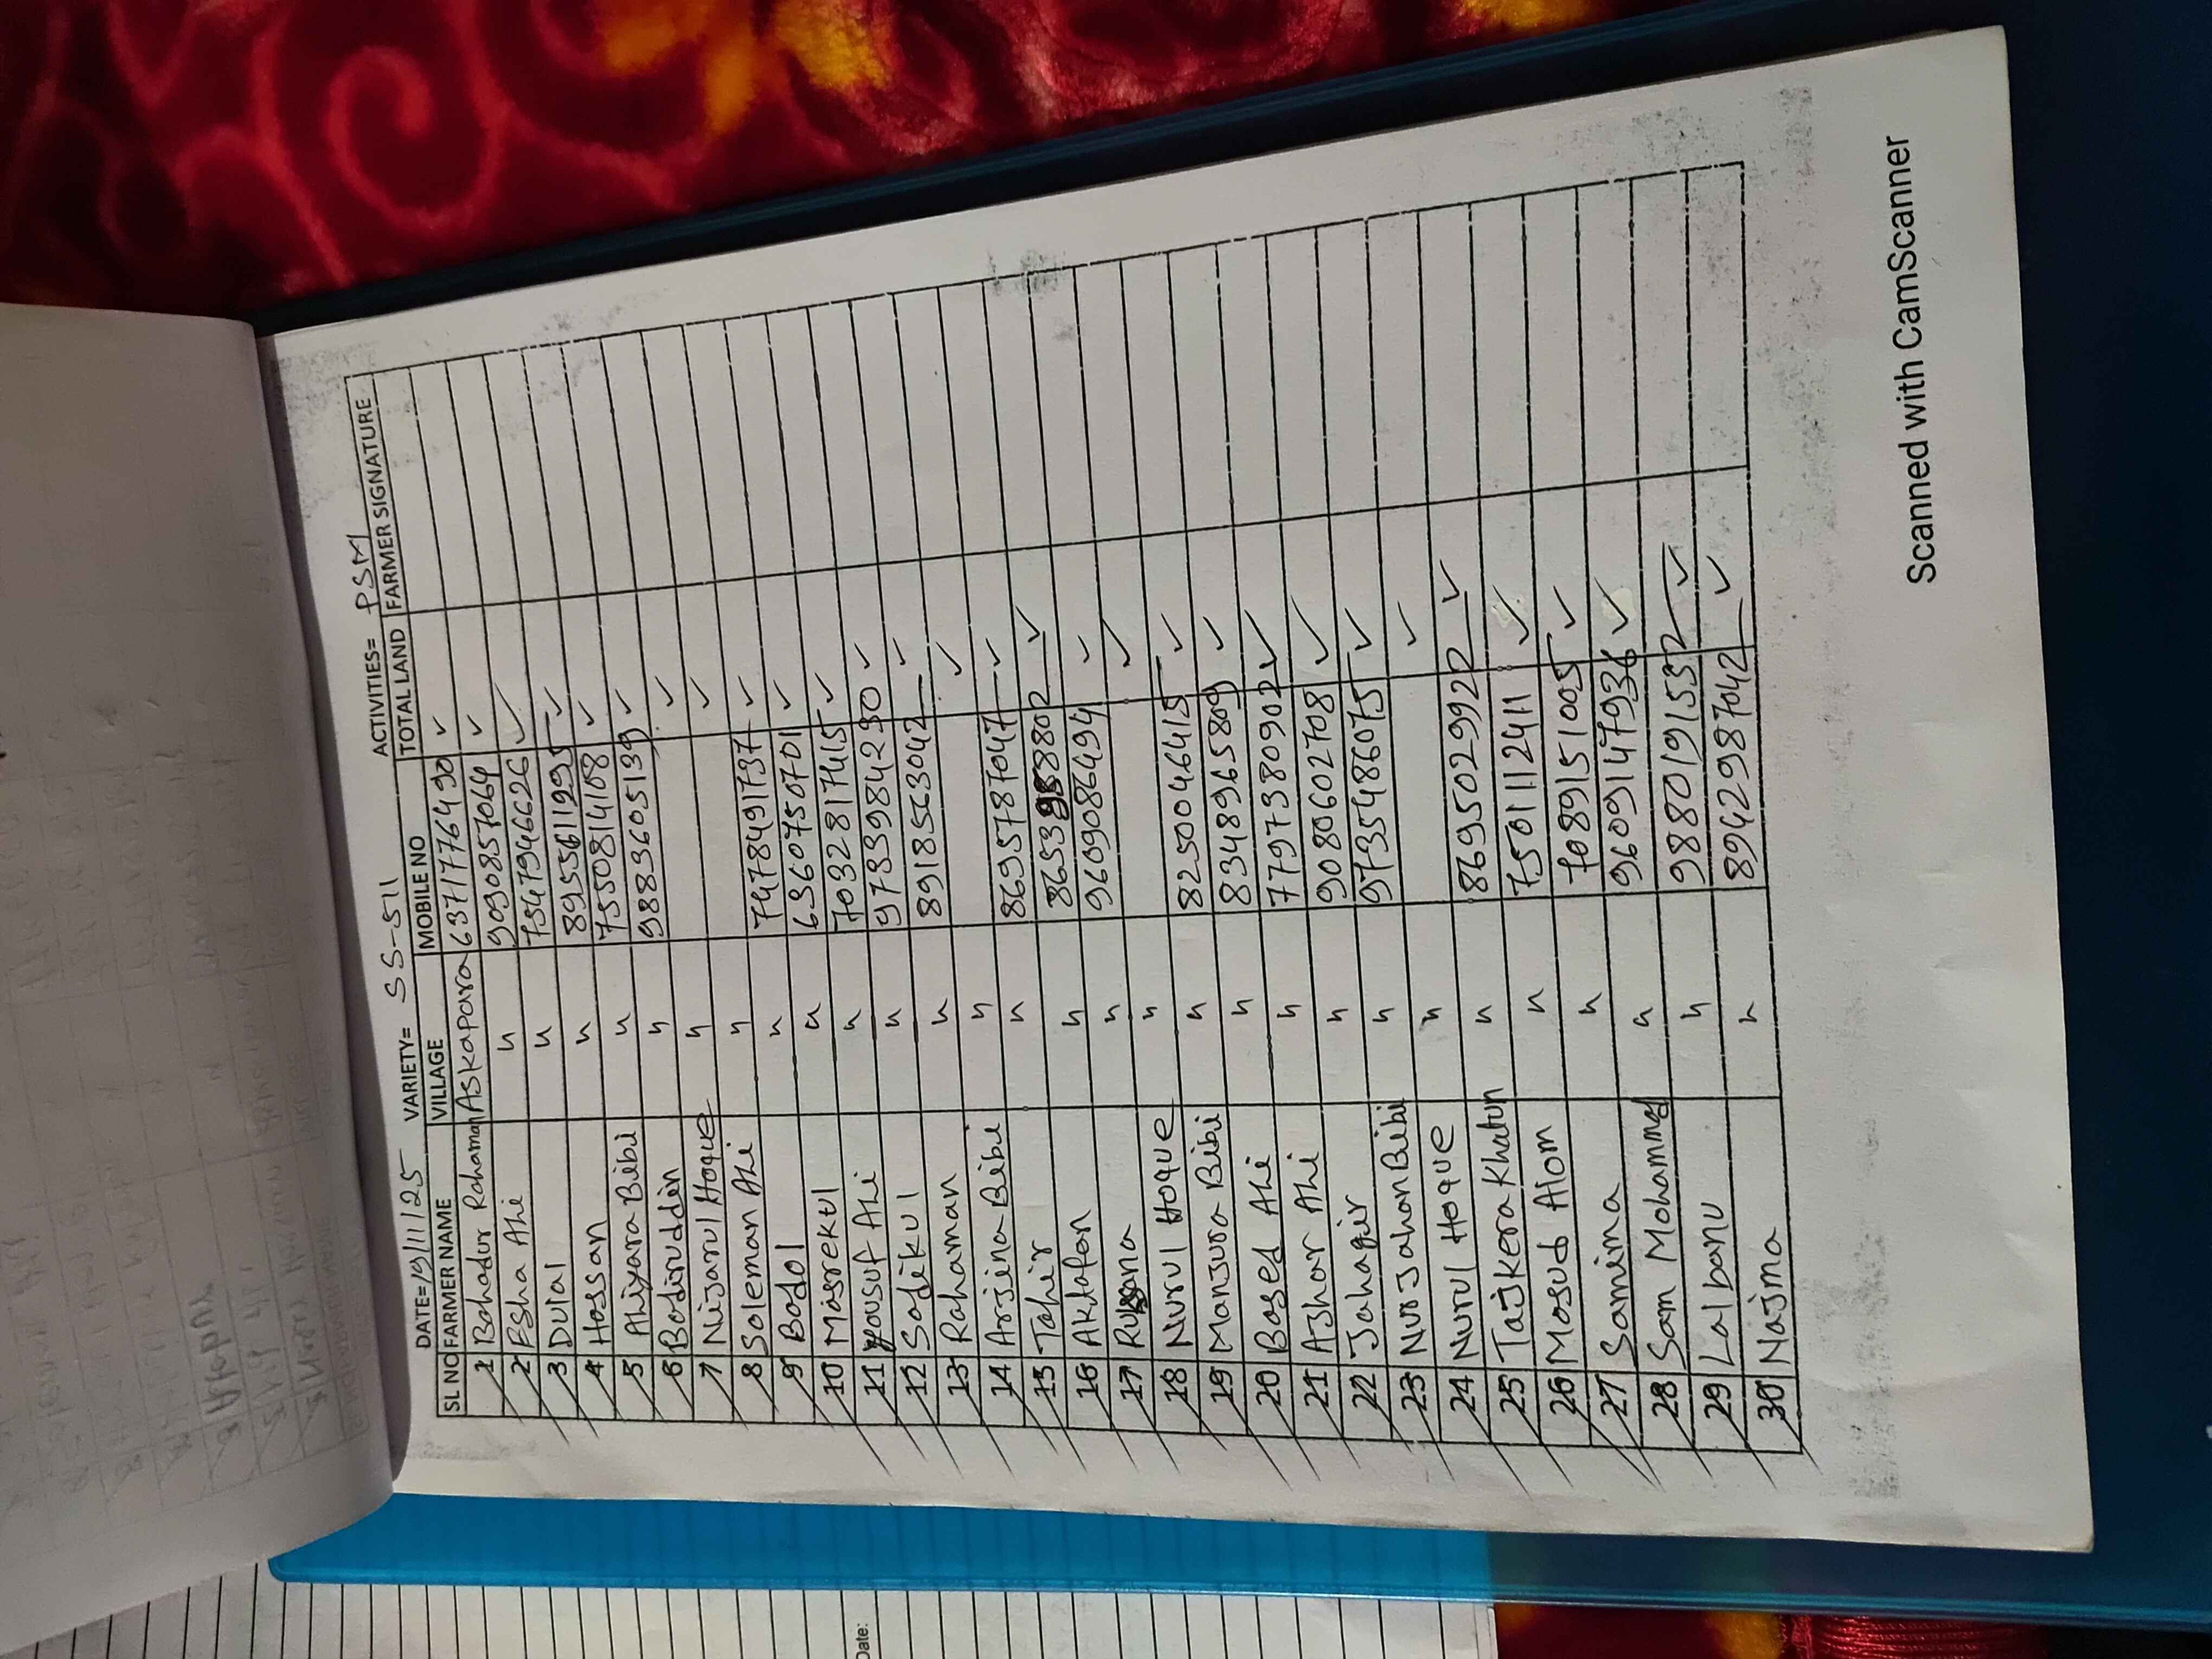 DATE= 19/11/25 VARIETY= SS-511 ACTIVITIES= PSM
SL NO FARMER NAME VILLAGE MOBILE NO TOTAL LAND FARMER SIGNATURE
1 Bahadur Rahaman Askapara 6371776490 ✓
2 Esha Ali " 9090857064 ✓
3 Dulal " 7547946626 ✓
4 Hossan " 8955611295 ✓
5 Aliyara Bibi " 7550814108 ✓
6 Badiruddin " 9883605139 ✓
7 Nijarul Hoque " ✓
8 Soleman Ali " ✓
9 Badol " 7478491737 ✓
10 Masrekul " 6360750701 ✓
11 yousuf Ali " 7032817415 ✓
12 Sadikul " 9783984230 ✓
13 Rahaman " 8918563042 ✓
14 Arjina Bibi " ✓
15 Tahir " 8695787047 ✓
16 Aktafan " ✓
17 " 9609086494 ✓
18 Nurul Hoque " ✓
19 Manjura Bibi " 8250046415 ✓
20 Based Ali " 8348965809 ✓
21 Ashar Ali " 7797380902 ✓
22 Jahagir " 9080602708 ✓
23 Nur Jahan Bibi " 9735486075 ✓
24 Nurul Hoque " ✓
25 Tajkera Khatun " 8695029922 ✓
26 Masud Alom " 7501112411 ✓
27 Samima " 7089151005 ✓
28 Sam Mohammed " 9609147936 ✓
29 Lalbanu " 9880191532 ✓
30 Najma " 8942987042 ✓
Scanned with CamScanner
Date: